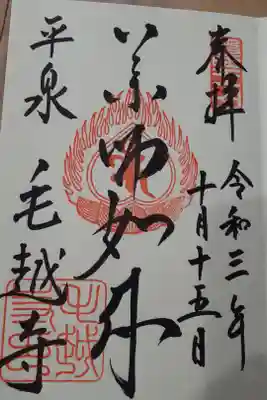 奉拝
令和三年
十月十五日
薬師如来
平泉
毛越寺